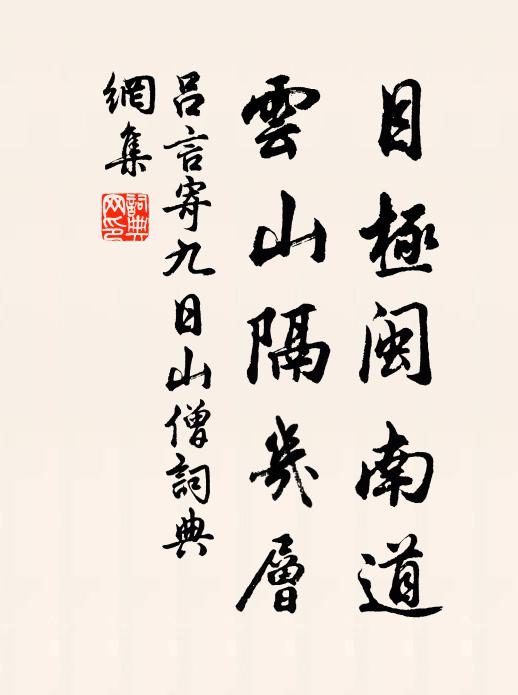 目極閩南道
雲山隔幾層
呂言寄九日山僧詞典
網集
詞典
网印